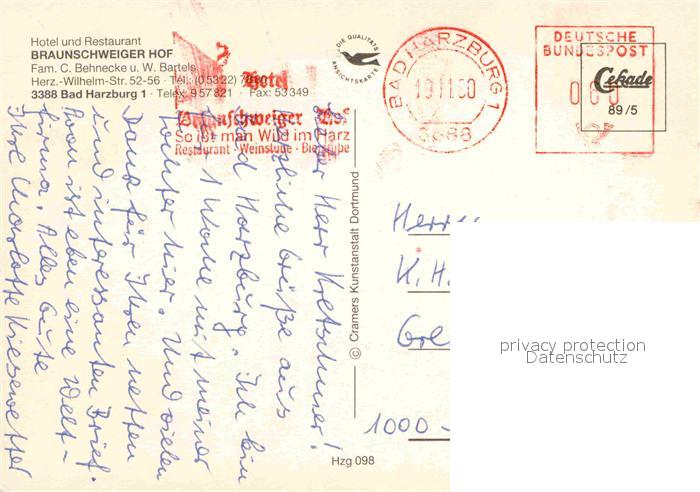 Hotel und Restaurant
BRAUNSCHWEIGER HOF
Fam. C. Behnecke u. W. Bartels
Herz.-Wilhelm-Str. 52-56 · Tel.: (05322)
3388 Bad Harzburg 1 · Telex 957821 · Fax: 53349
Hotel
Braunschweiger Hof
So ißt man Wild im Harz
Restaurant · Weinstube · Bierstube
DIE QUALITÄTS
ANSICHTSKARTE
BAD HARZBURG 1
19.11.90
3388
DEUTSCHE
BUNDESPOST
Cekade
89/5
Lieber Herr Kretschmer!
Herzliche Grüße aus
Bad Harzburg. Ich bin
1 Woche mit meiner
Tochter hier. Und vielen
Dank für Ihren netten
und interessanten Brief.
Man ist eben eine Welt-
firma. Alles Gute
Ihre Charlotte Kiesewetter
© Cramers Kunstanstalt Dortmund
Herrn
K. H.
1000 -
privacy protection
Datenschutz
Hzg 098